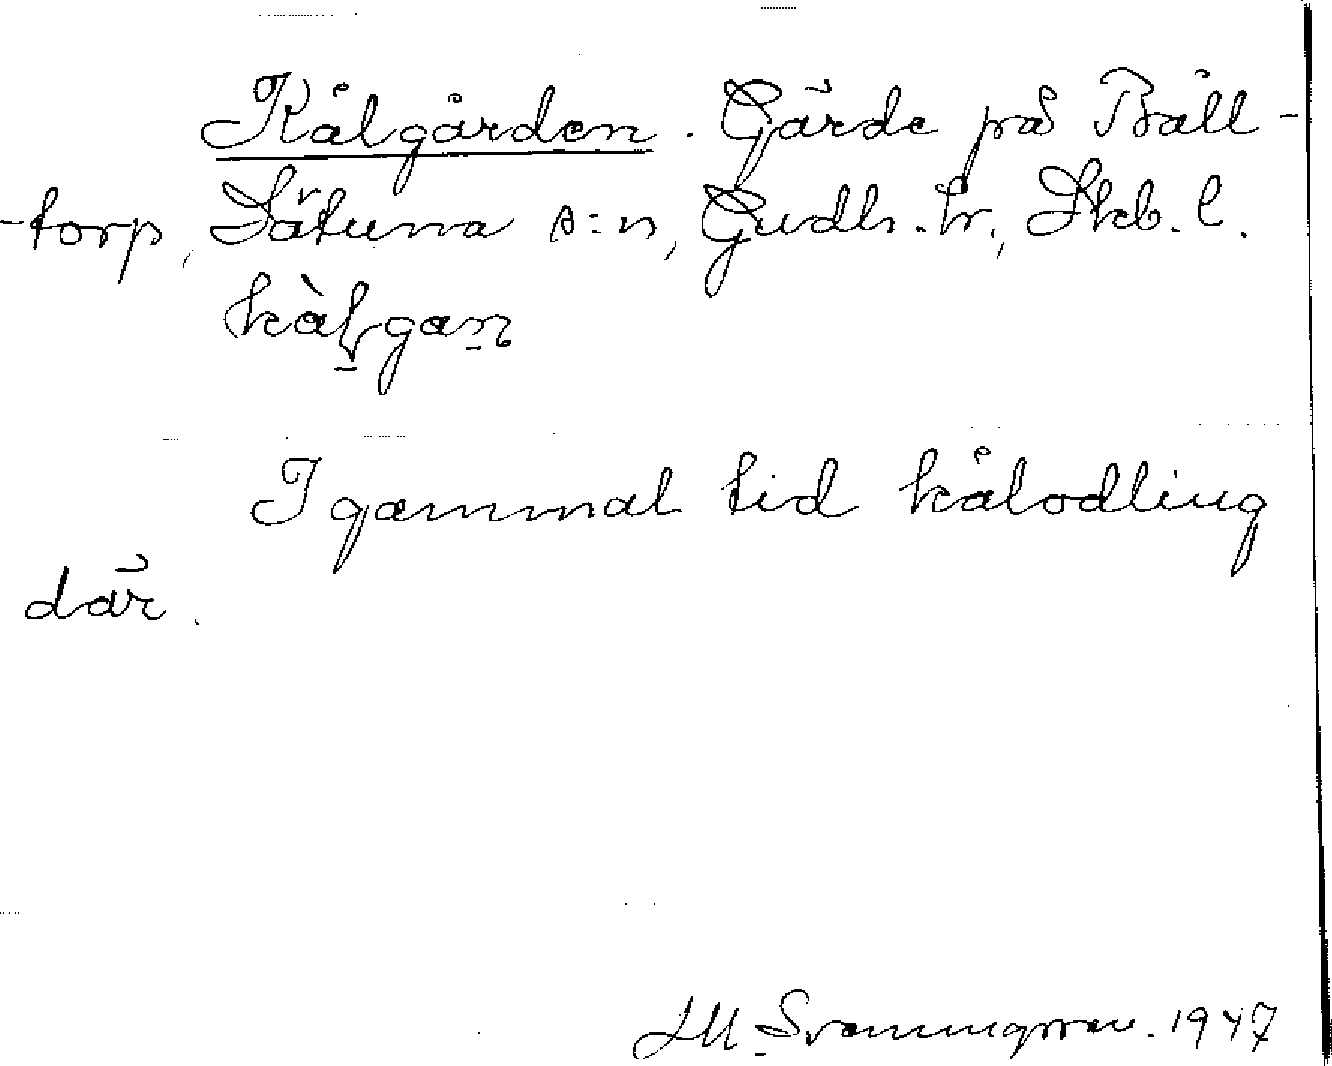 Kålgården. Gärde på Båll-
-torp, Sätuna s:n, Gudh. hr, Skb. l.
kàl̠gan̠
I gammal tid kålodling
där.
LM. Svanungsson. 1947